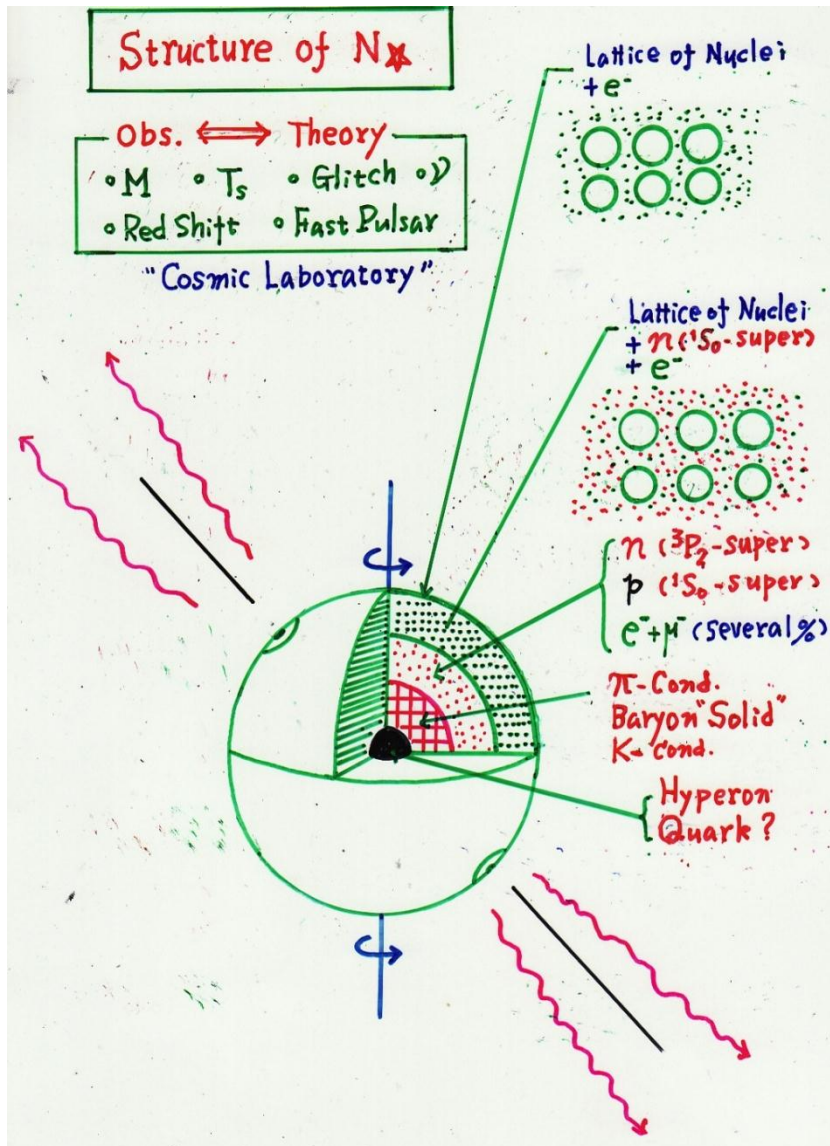 Structure of N☆
Obs. ⟺ Theory
• M • Ts • Glitch • ν
• Red Shift • Fast Pulsar
"Cosmic Laboratory"
Lattice of Nuclei
+ e⁻
Lattice of Nuclei
+ n (¹S₀-super)
+ e⁻
n (³P₂-super)
p (¹S₀-super)
e⁻+μ⁻ (several%)
π-Cond.
Baryon "Solid"
K-Cond.
Hyperon
Quark ?